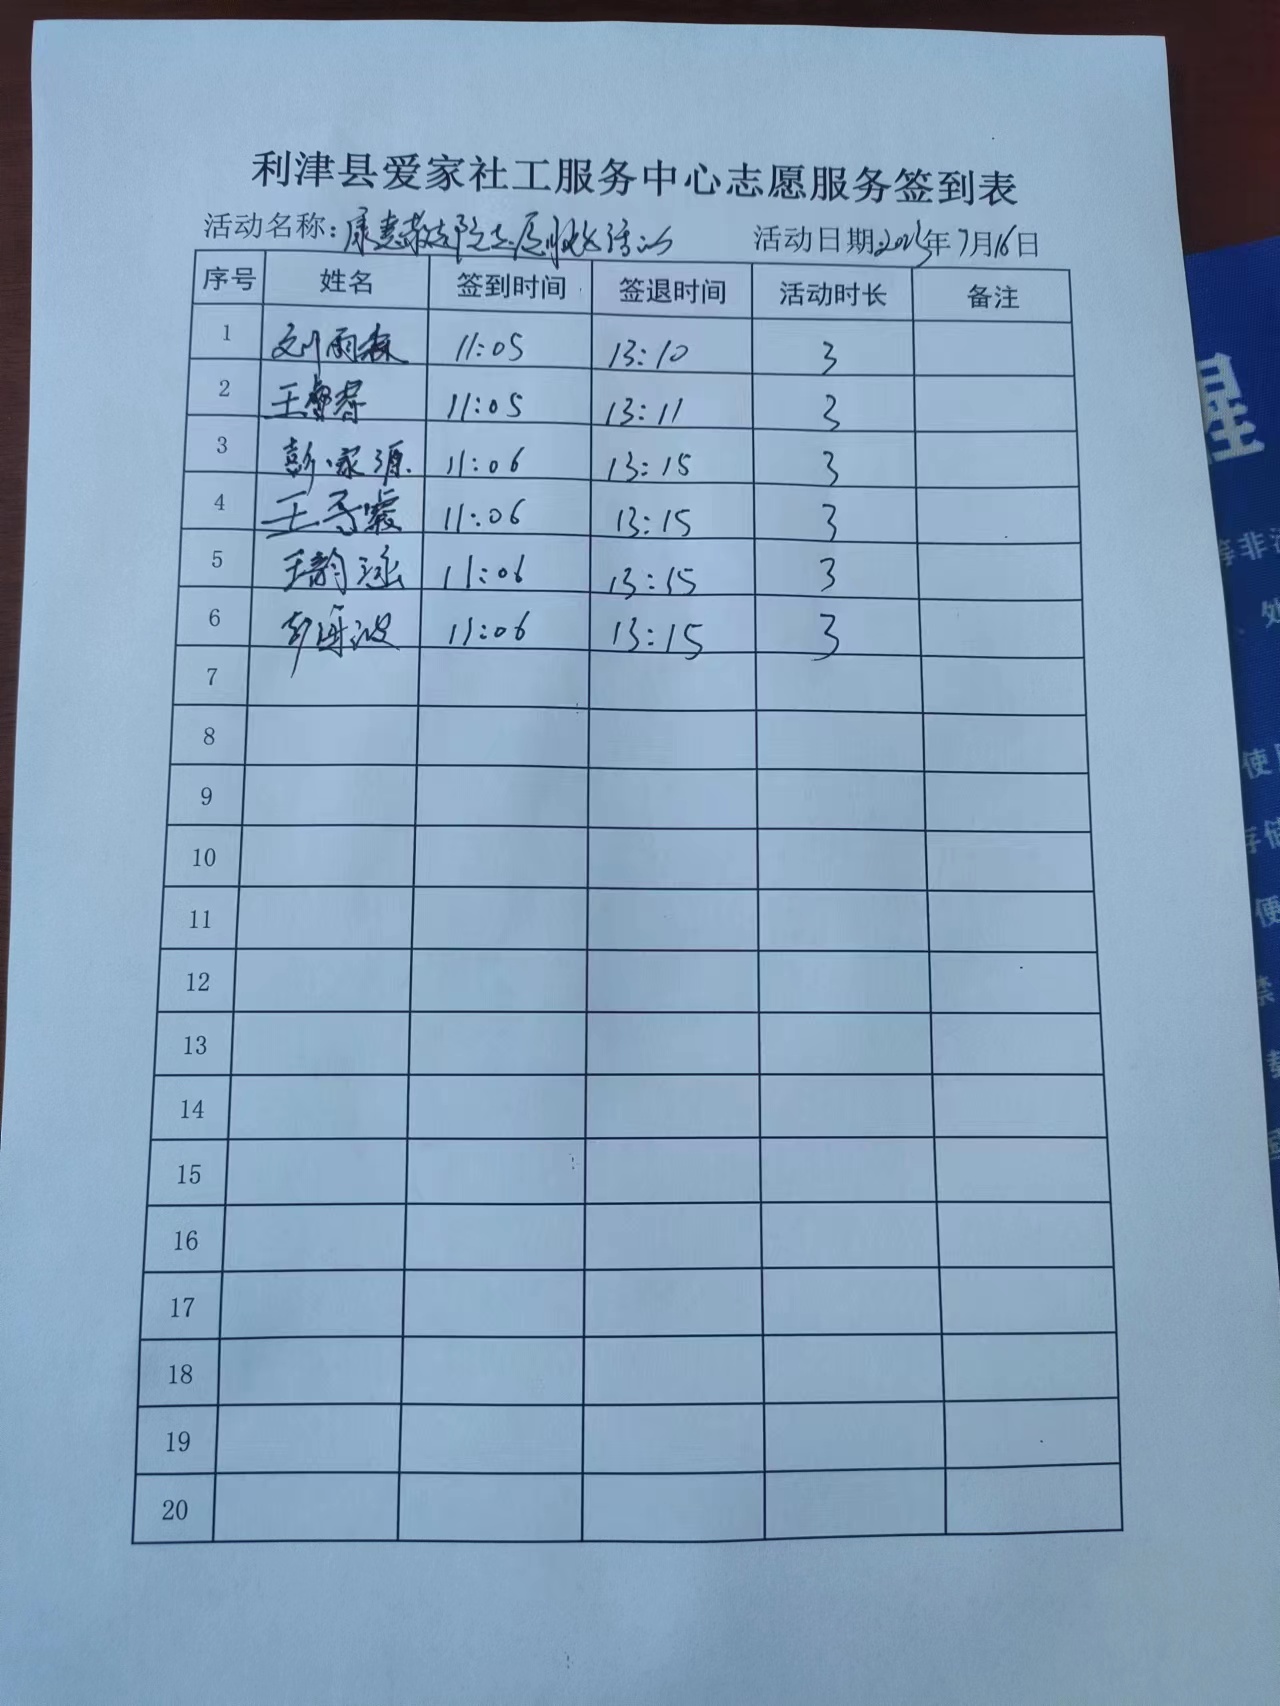 利津县爱家社工服务中心志愿服务签到表
活动名称:康惠敬老院志愿服务活动 活动日期:2023年7月16日
序号 姓名 签到时间 签退时间 活动时长 备注
1 刘雨森 11:05 13:10 3
2 王睿 11:05 13:11 3
3 彭家源 11:06 13:15 3
4 王子 11:06 13:15 3
5 王韵涵 11:06 13:15 3
6 彭 波 11:06 13:15 3
7
8
9
10
11
12
13
14
15
16
17
18
19
20
醒
等非
处
使
存储
便
禁